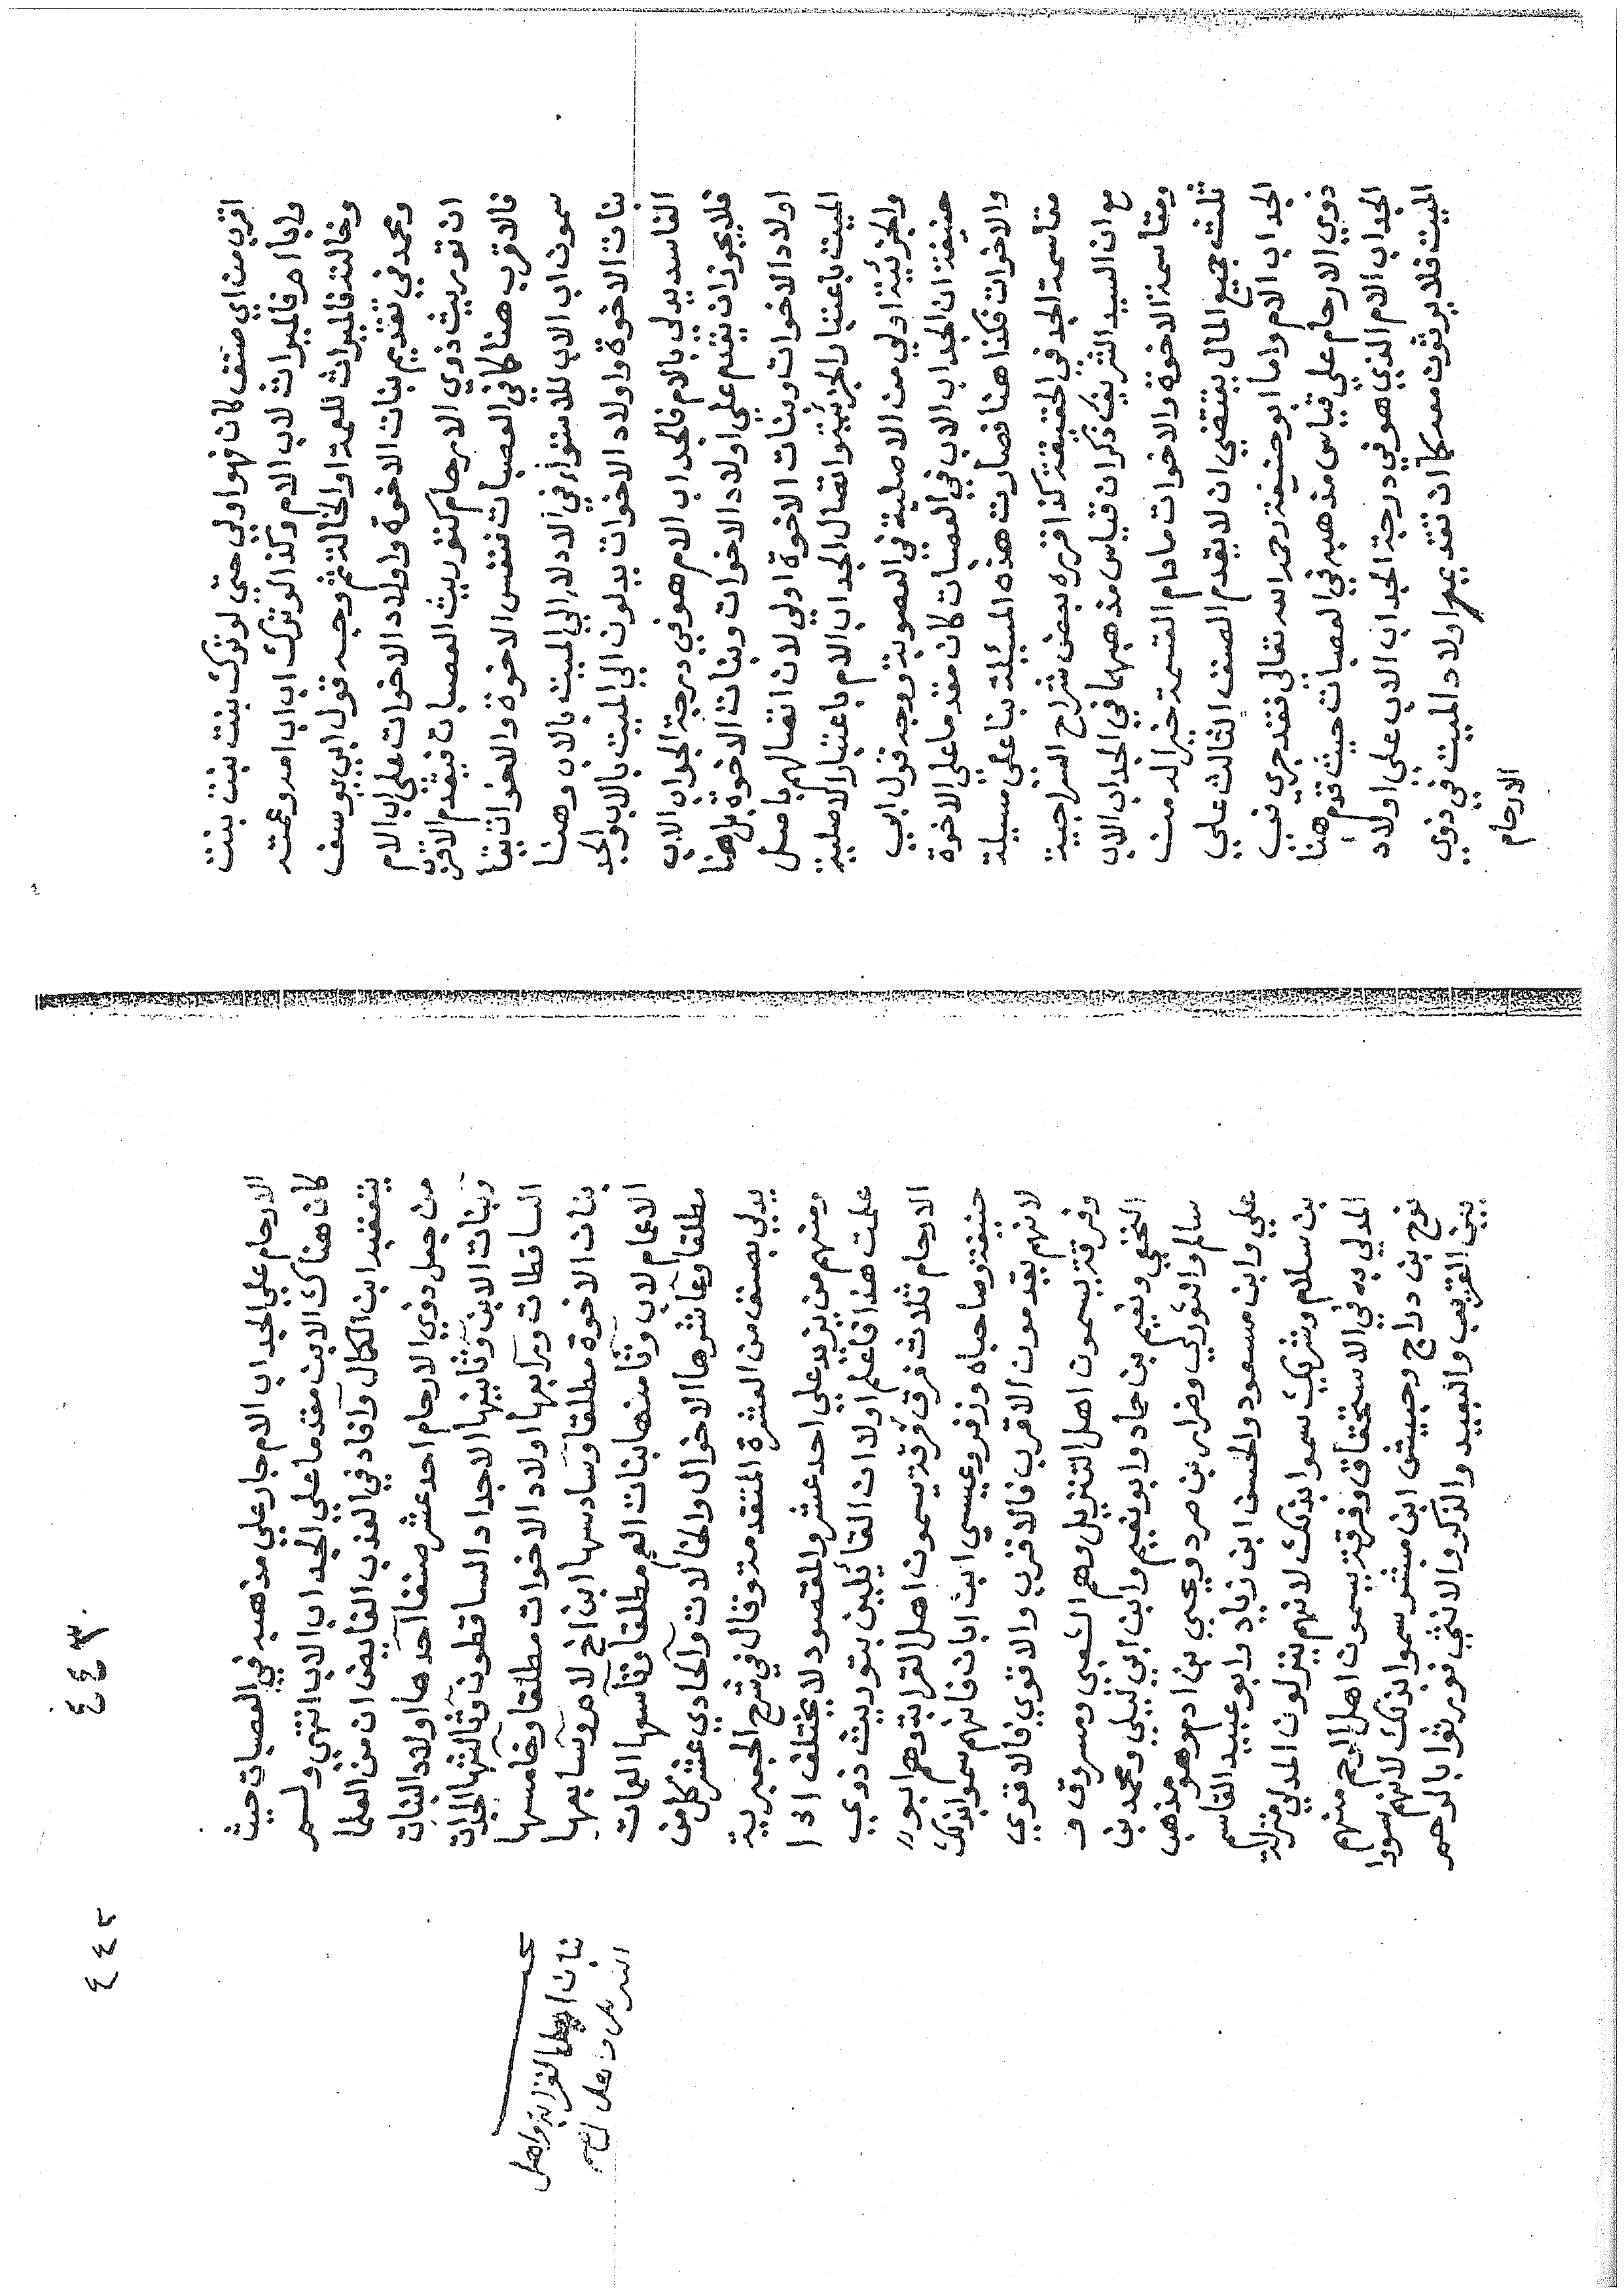 اقرب من اي صنف كان فهو اولي حتي لو ترك بنت بنت بنت
وابا ام فالميراث لاب الام وكذا لو ترك اب اب ام وعمته
وخالته فالميراث للعمة والخالة ثم وجه قول ابي يوسف
ومحمد في تقديم بنات الاخوة واولاد الاخوات علي اب الام
ان توريث ذوي الارحام كتوريث العصبات فيقدم الاقرب
فالاقرب هنا كما في العصبات فنفس الاخوة والاخوات
سمون اب الاب للاستواء في الادلاء الي الميت بالاب وهنا
بنات الاخوة واولاد الاخوات يدلون الي الميت بالاب والجد
الفاسد يدلي بالام فالجد اب الام هو في درجة الجد اب الاب
فلا يجوز ان يتقدم علي اولاد الاخوات وبنات الاخوة بل هنا
اولاد الاخوات وبنات الاخوة اولي لان اتصالهم باصل
الميت باعتبار الجزئية واتصال الجد اب الام باعتبار الاصلية
والجزئية اولي من الاصلية في العصوبة ووجه قول ابي
حنيفة ان الجد اب الاب في العصبات كان مقدما علي الاخوة
والاخوات فكذا هنا فصارت هذه المسئلة بنا علي مسيلة
مقاسمة الجد في الحقيقة كذا قرره بعض شراح السراجية
مع ان السيد الشريف ذكر ان قياس مذهبهما في الجد اب الاب
ومقاسمة الاخوة والاخوات مادام القسمة خير له من
ثلث جميع المال يقتضي ان لا يقدم الصنف الثالث علي
الجد اب الام واما ابو حنيفة رحمه الله تعالي فقد جري في
ذوي الارحام علي قياس مذهبه في العصبات حيث قدم هنا
الجد اب الام الذي هو في درجة الجد اب الاب علي اولاد
الميت فلا يرثون معه كما ان تقديم اولاد الميت في ذوي
الارحام
٤٤٣
٤٤٢
الارحام علي الجد اب الام جار علي مذهبه في العصبات حيث
كان هناك الابن مقدما علي الجد اب الاب انتهي ولسم
يتعقبه ابن الكمال وافاد في العذب الفايض ان من العلما
من جعل ذوي الارحام احد عشر صنفا احدها اولاد البنات
وبنات الابن وثانيها الاجداد الساقطون وثالثها الجدات
الساقطات ورابعها اولاد الاخوات مطلقا وخامسها
بنات الاخوة مطلقا وسادسها ابن اخ لام وسابعها
الاعمام لاب وثامنها بنات العم مطلقا وتاسعها العمات
مطلقا وعاشرها الاخوال والخالات والحادي عشر كل من
يدلي بصنف من العشرة المتقدمة وقال في شرح الجعبرية
ومنهم من يزيد علي احد عشر والمقصود لا يختلف اذا
علمت هذا فاعلم اولا ان القائلين بتوريث ذوي
الارحام ثلاث فرق فرقة يسمون اهل القرابة وهم ابو
حنيفة وصاحباه وزفر وعيسي ابن ابان فانهم سموا بذلك
لانهم يقدمون الاقرب فالاقرب والاقوي فالاقوي
وفرقة يسمون اهل التنزيل وهم الشعبي ومسروق و
النخعي ونعيم بن حماد وابو نعيم وابن ابي ليلي ومحمد بن
سالم والثوري وضرار بن صرد ويحيي بن ادم وهو مذهب
علي وابن مسعود والحسن ابن زياد وابو عبيد القاسم
بن سلام وشريك سموا بذلك لانهم ينزلون المدلي منزلة
المدلي به في الاستحقاق وفرقة يسمون اهل الرحم منهم
نوح بن دراج وحبيش ابن مبشر سموا بذلك لانهم سووا
بين القريب والبعيد والذكر والانثي فورثوا بالرحم
بيان اهل القرابة واهل
التنزيل واهل الرحم